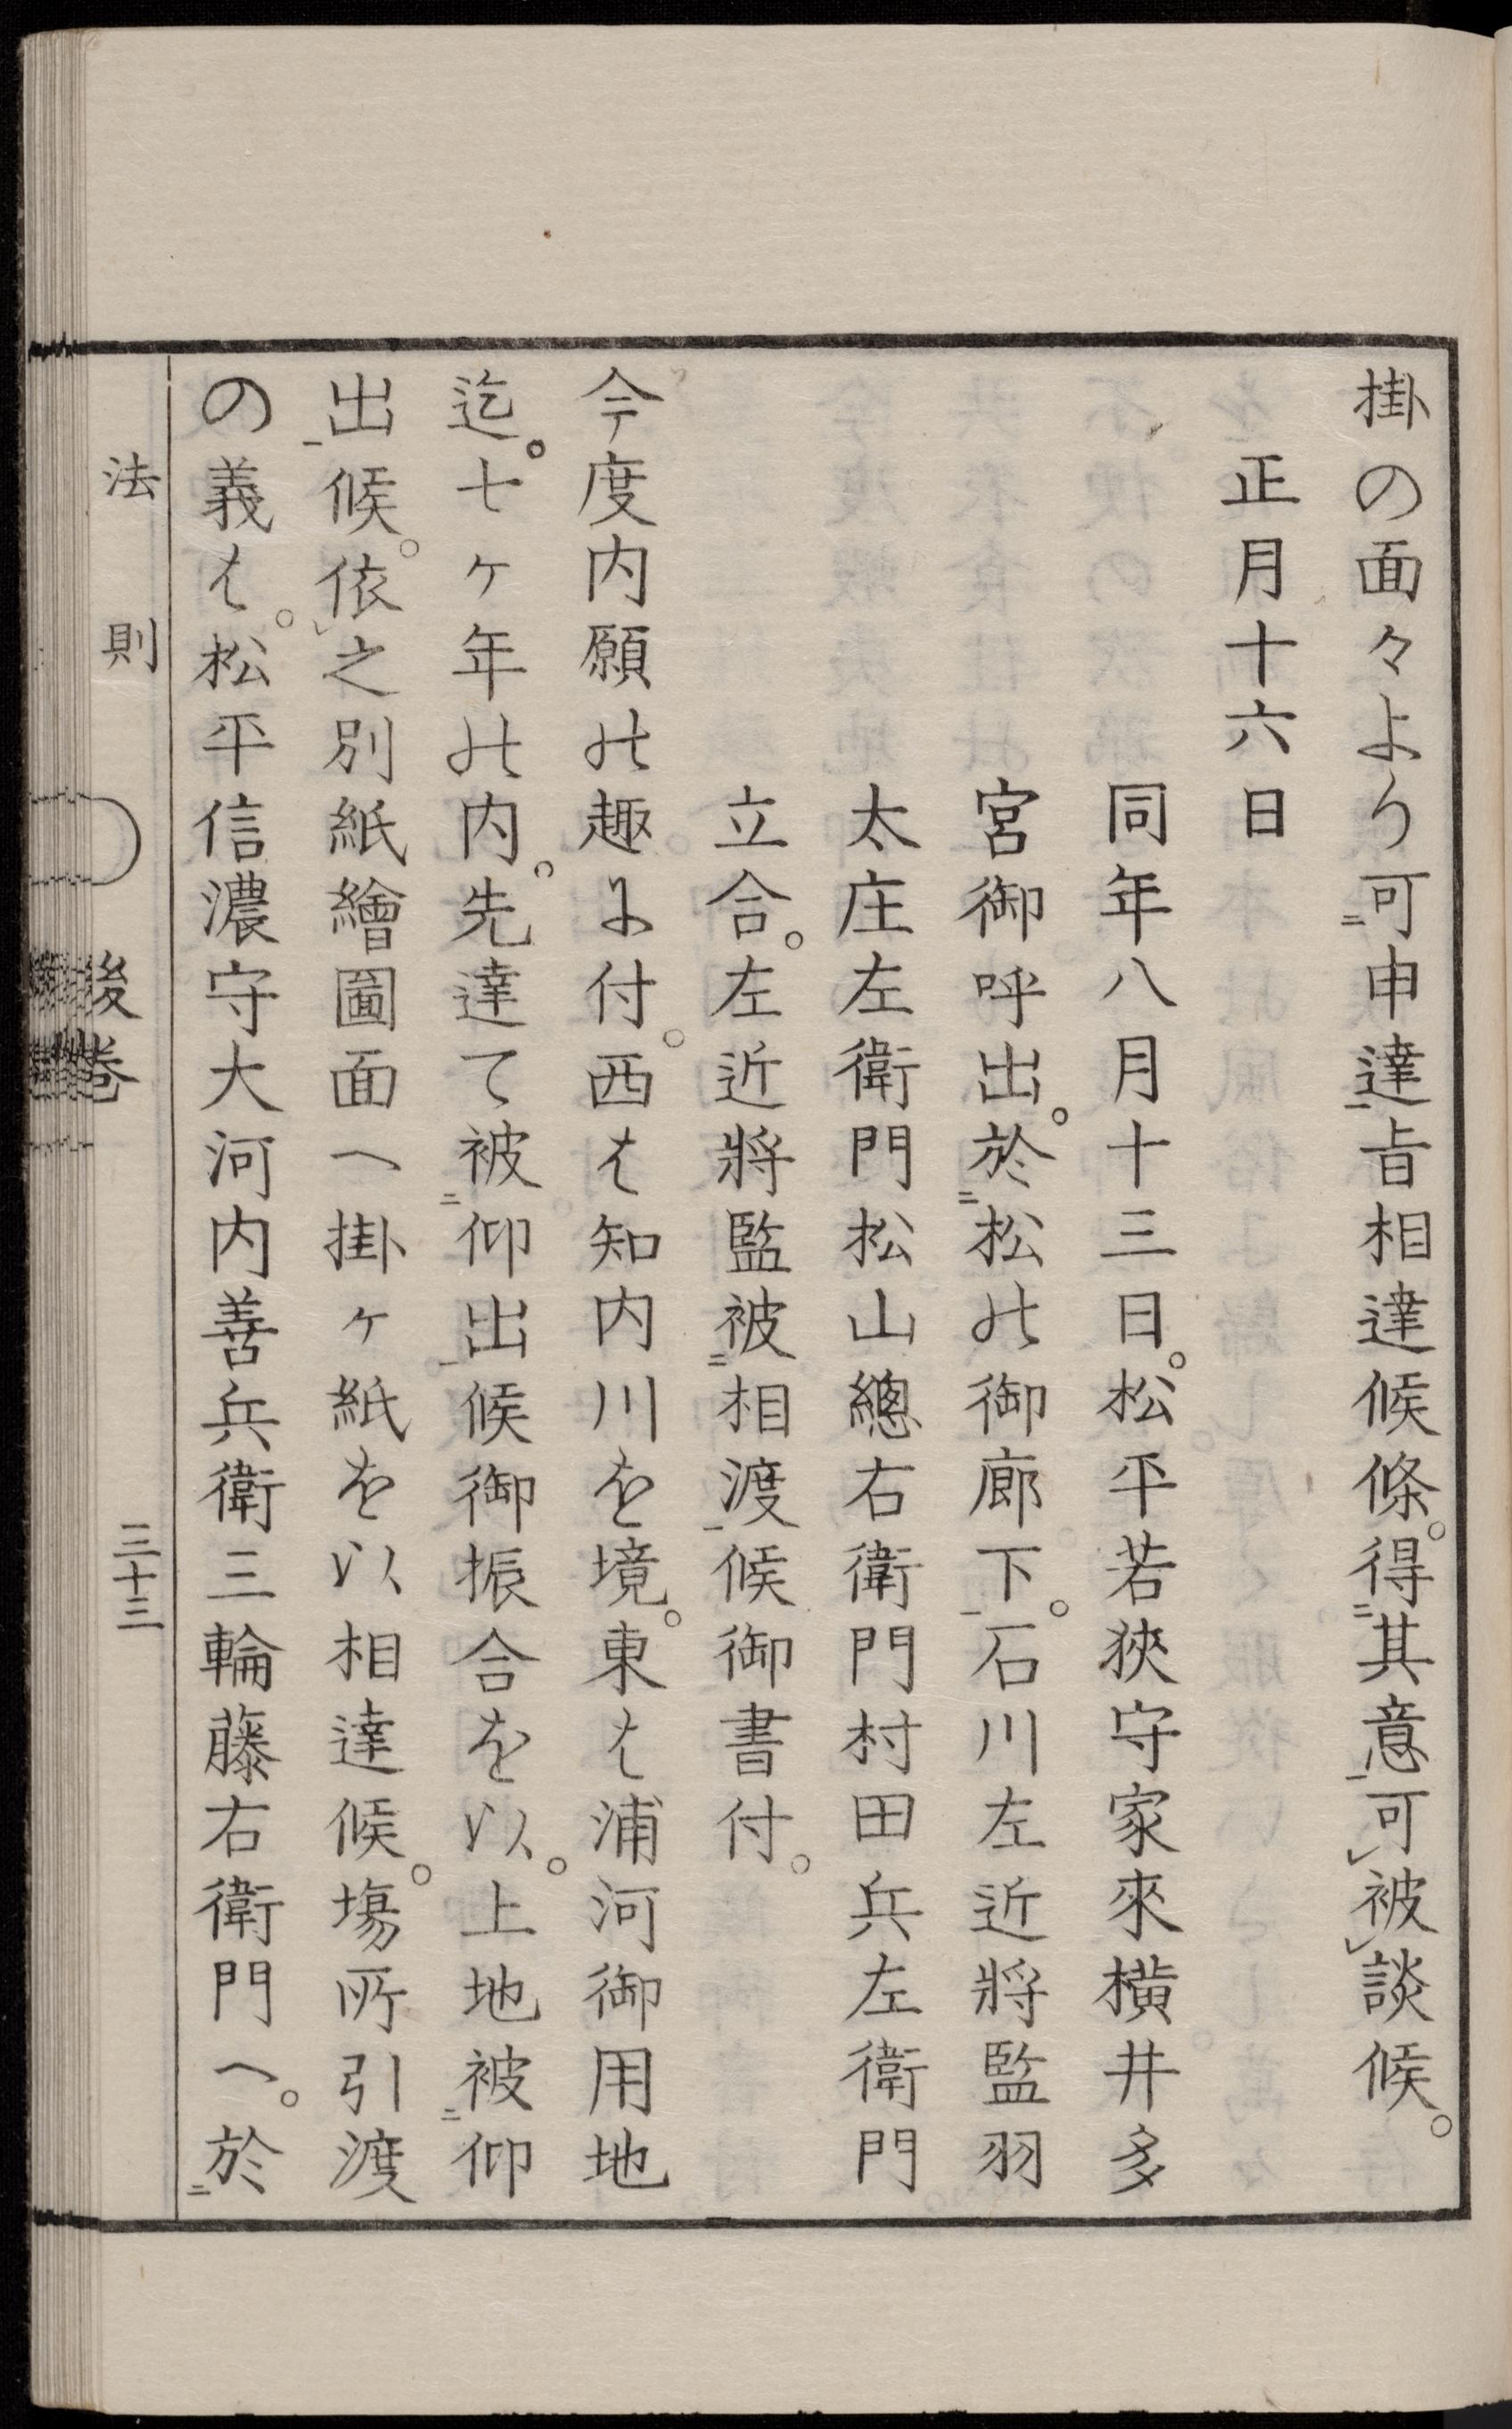 掛の面々より可二申達一旨相達候條。得二其意一可レ被レ談候。
正月十六日
同年八月十三日。松平若狹守家來横井多
宮御呼出。於二松の御廊下一。石川左近將監羽
太庄左衛門松山總右衛門村田兵左衛門
立合。左近將監被二相渡一候御書付。
今度内願の趣に付。西は知内川を境。東は浦河御用地
迄。七ヶ年の内。先達て被二仰出一候御振合を以。上地被二仰
出一候。依レ之別紙繪圖面へ掛ヶ紙を以相達候。塲所引渡
の義は。松平信濃守大河内善兵衛三輪藤右衛門へ。於二
法則 後巻 三十三